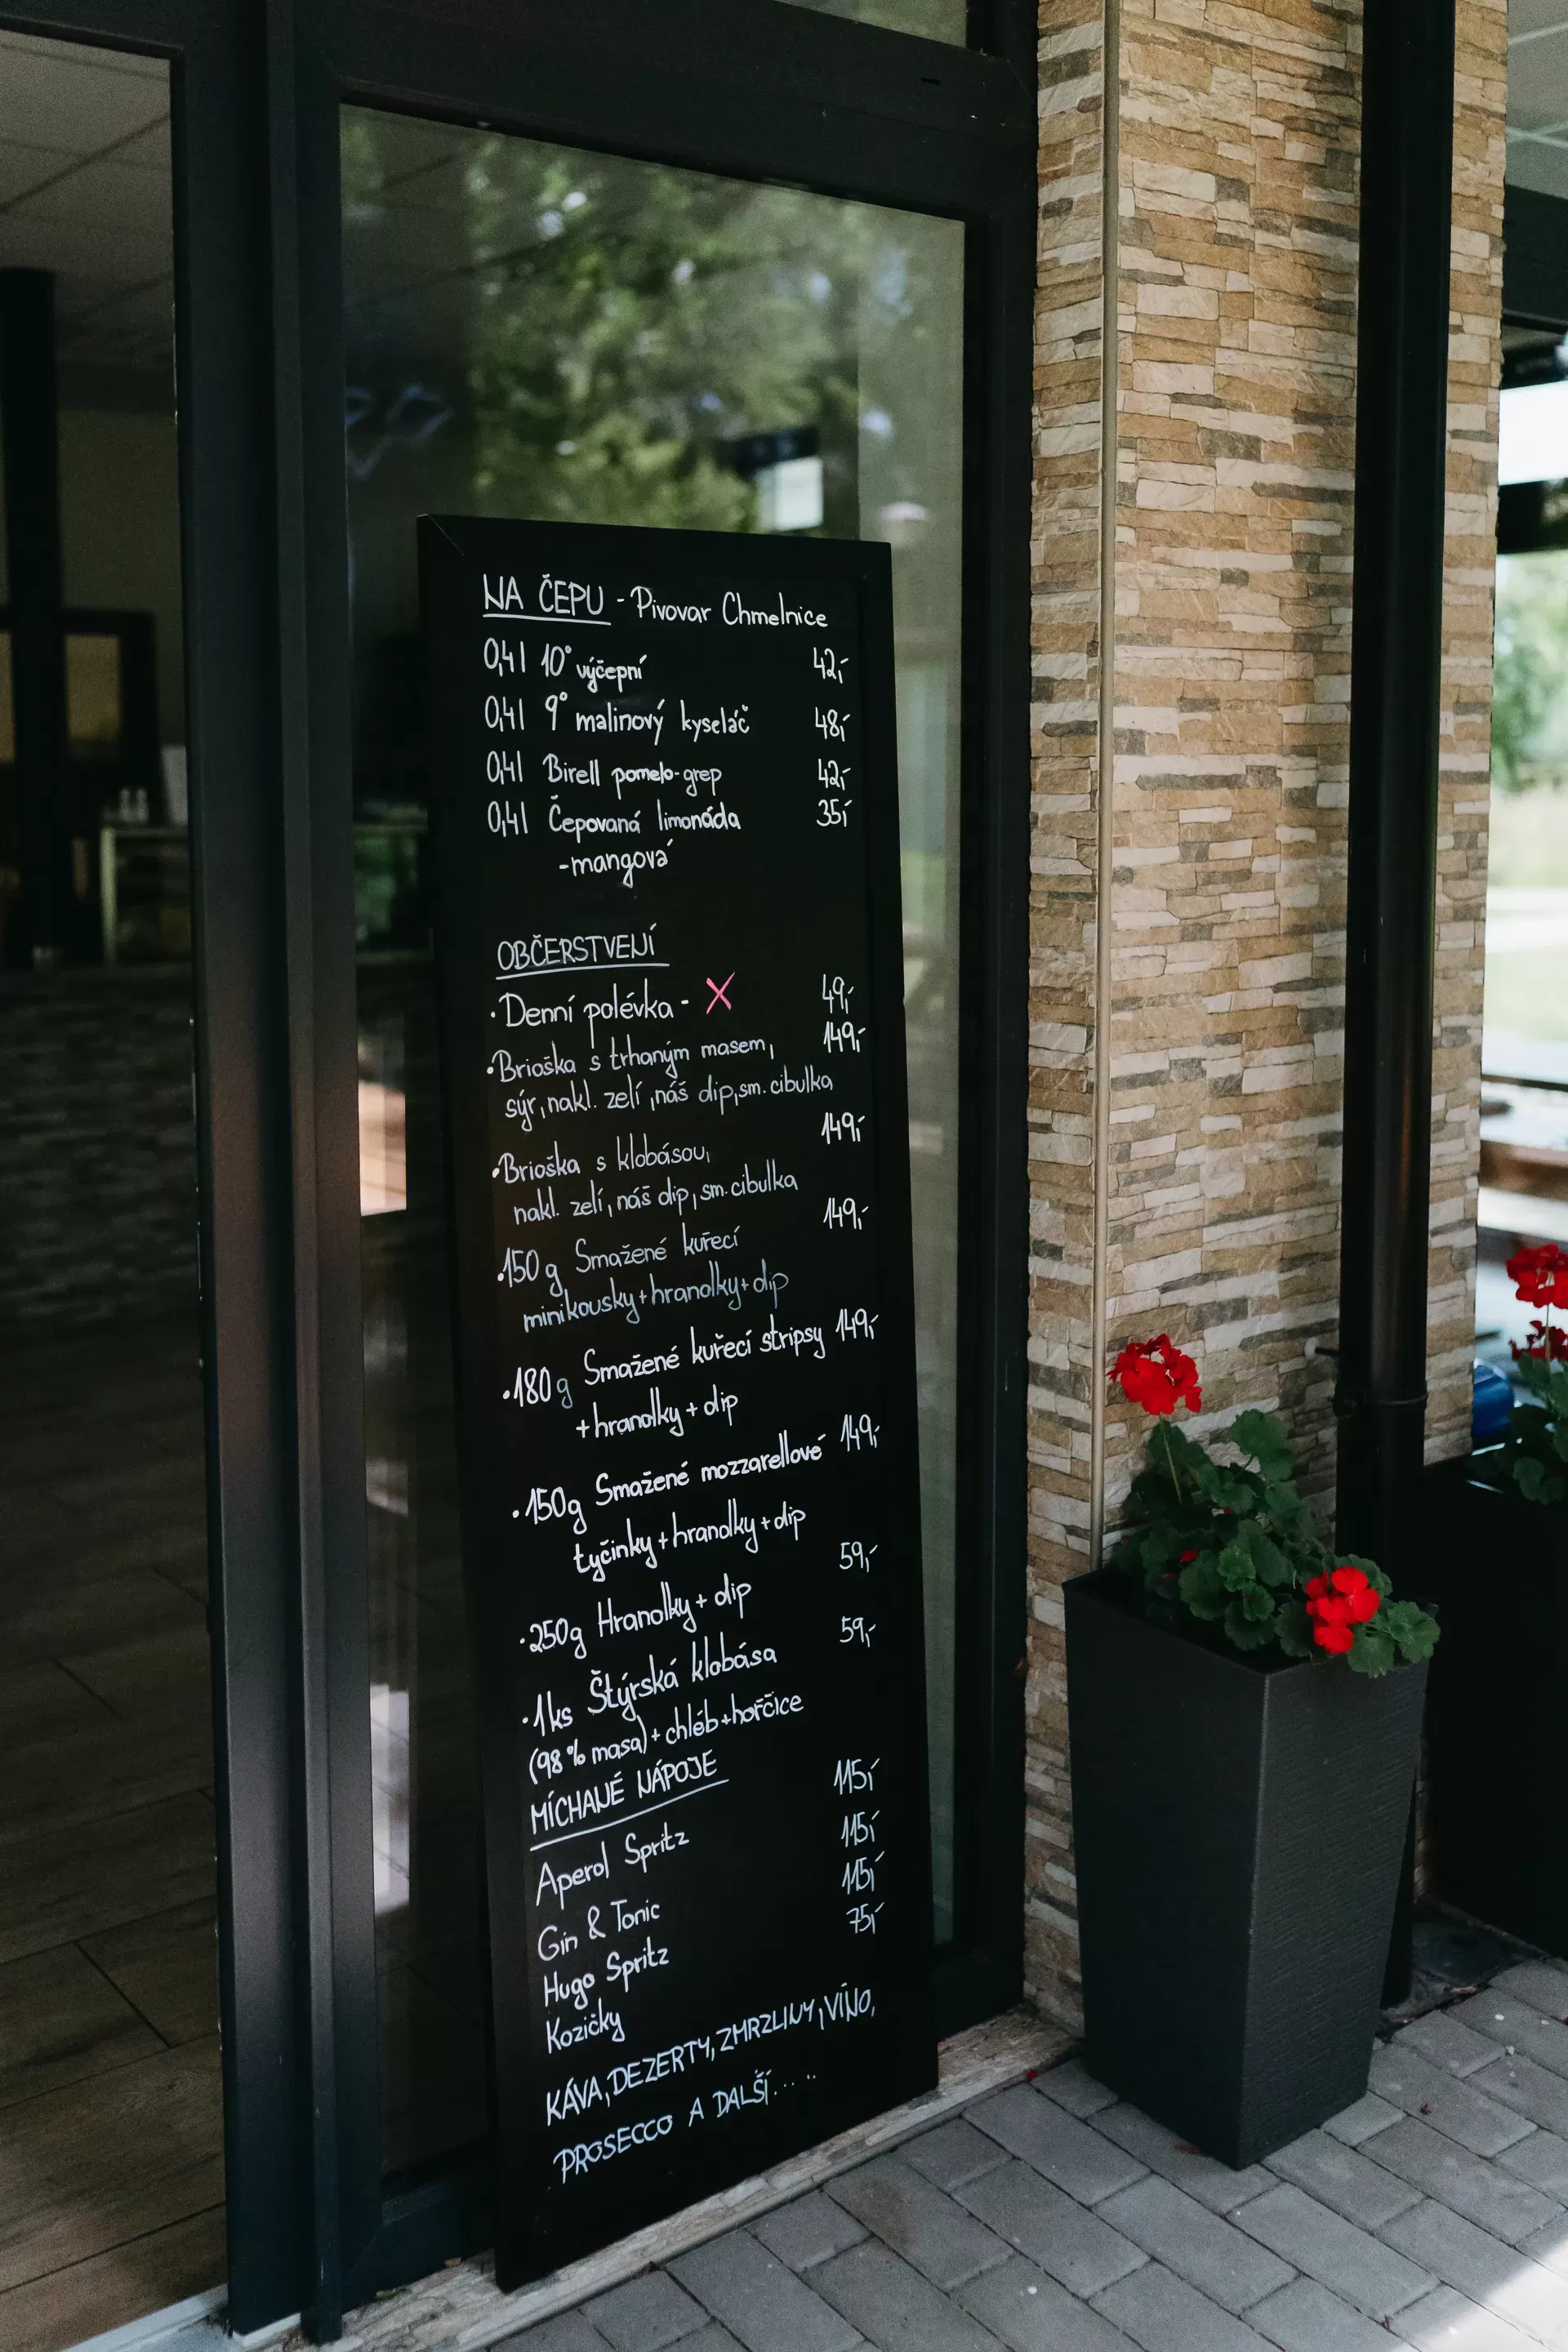 NA ČEPU - Pivovar Chmelnice
0,4l 10° výčepní 42,-
0,4l 9° malinový kyseláč 48,-
0,4l Birell pomelo-grep 42,-
0,4l Čepovaná limonáda 35,-
-mangová
OBČERSTVENÍ
• Denní polévka - X 49,-
• Brioška s trhaným masem, 149,-
sýr, nakl. zelí, náš dip, sm. cibulka
• Brioška s klobásou, 149,-
nakl. zelí, náš dip, sm. cibulka
• 150g Smažené kuřecí 149,-
minikousky + hranolky + dip
• 180g Smažené kuřecí stripsy 149,-
+ hranolky + dip
• 150g Smažené mozzarellové 149,-
tyčinky + hranolky + dip
• 250g Hranolky + dip 59,-
• 1ks Štýrská klobása 59,-
(98% masa) + chléb + hořčice
MÍCHANÉ NÁPOJE
Aperol Spritz 115,-
Gin & Tonic 115,-
Hugo Spritz 115,-
Kozičky 75,-
KÁVA, DEZERTY, ZMRZLINY, VÍNO,
PROSECCO A DALŠÍ.....